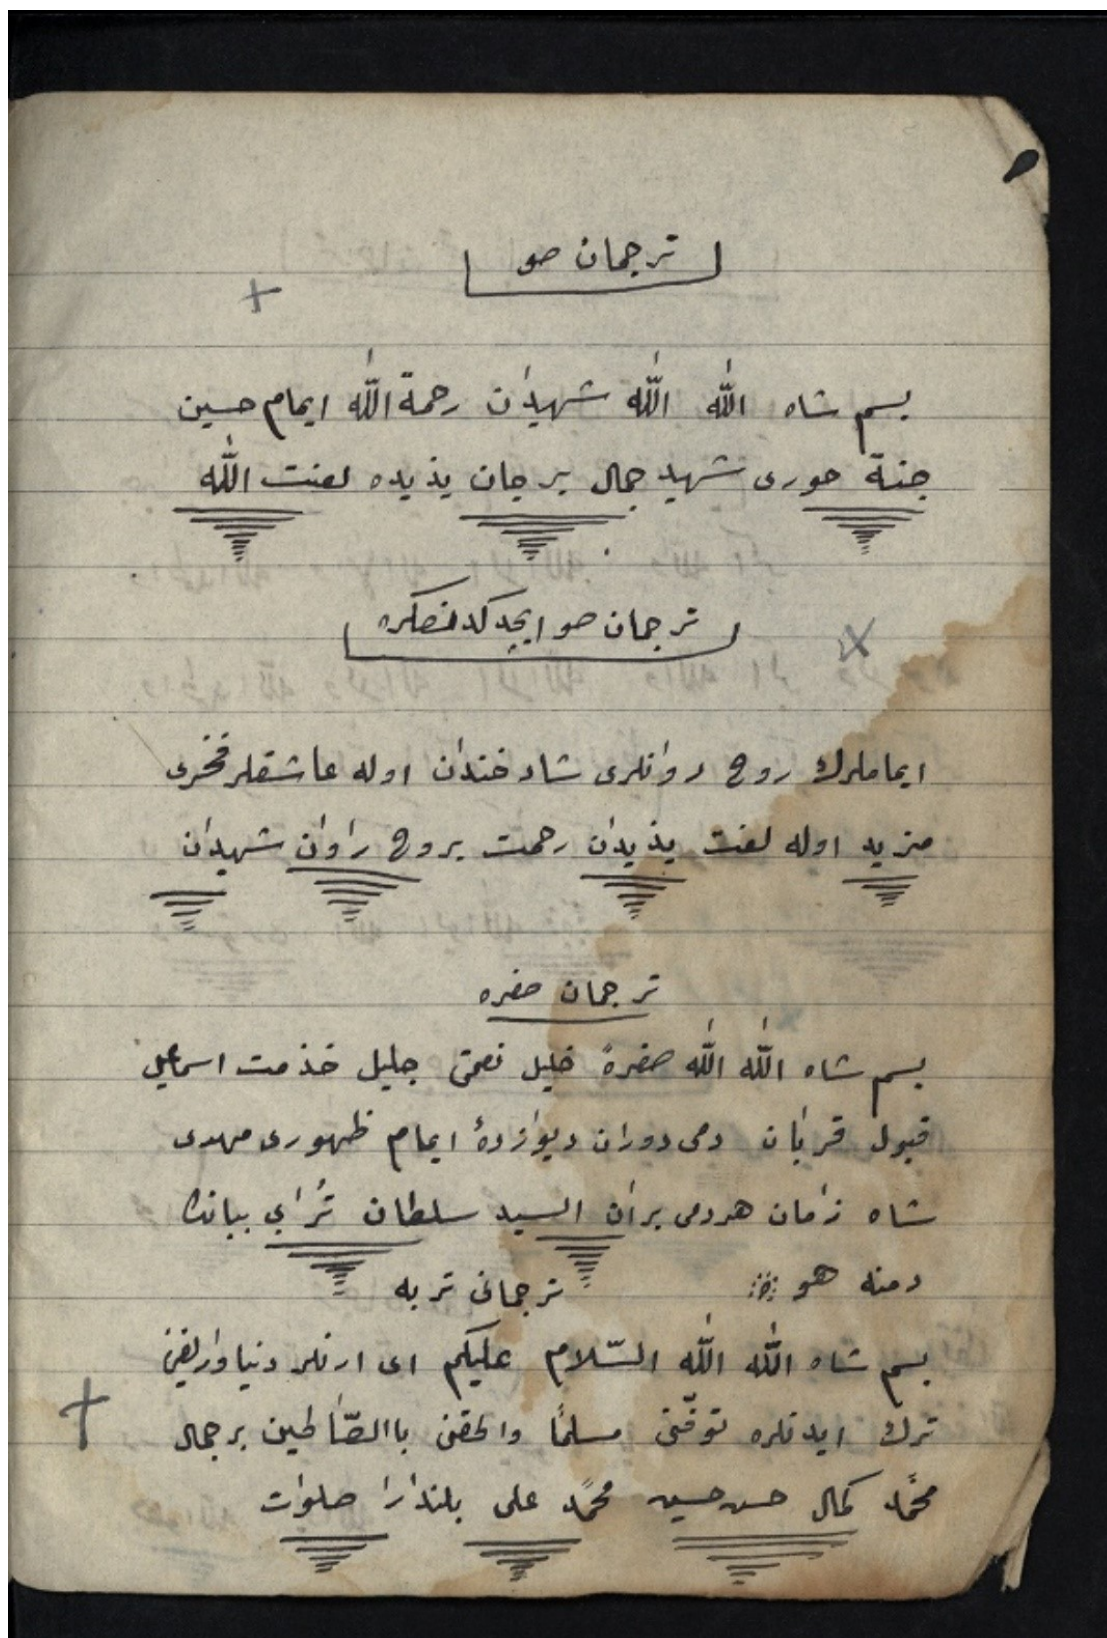 ترجمان صو
بسم شاه الله الله شهيدان رحمة الله ايمام حسين
جنة حورى شهيد جمال بر جان يذيده لعنت الله
ترجمان صو ايچدكدنصكره
ايماملرك روح روانلرى شاد خندان اوله عاشقلر فخرى
مزيد اوله لعنت يذيدان رحمت بروح راوان شهيدان
ترجمان صفره
بسم شاه الله الله صفرهٔ خليل نعمتى جليل خذمت اسماعيل
قبول قربان دمى دوران ديوازدهٔ ايمام ظهورى مهدى
شاه زمان هردمى بران السيد سلطان ترابي ببانك
دمنه هو
ترجمانى تربه
بسم شاه الله الله السّلام عليكم اى ارنلر دنيا وارلغنى
ترك ايدنلره توفّنى مسلمًا والحقنى باالصّالحين بر جمال
محمّد كمال حسن حسين محمّد على بلندارا صلوات